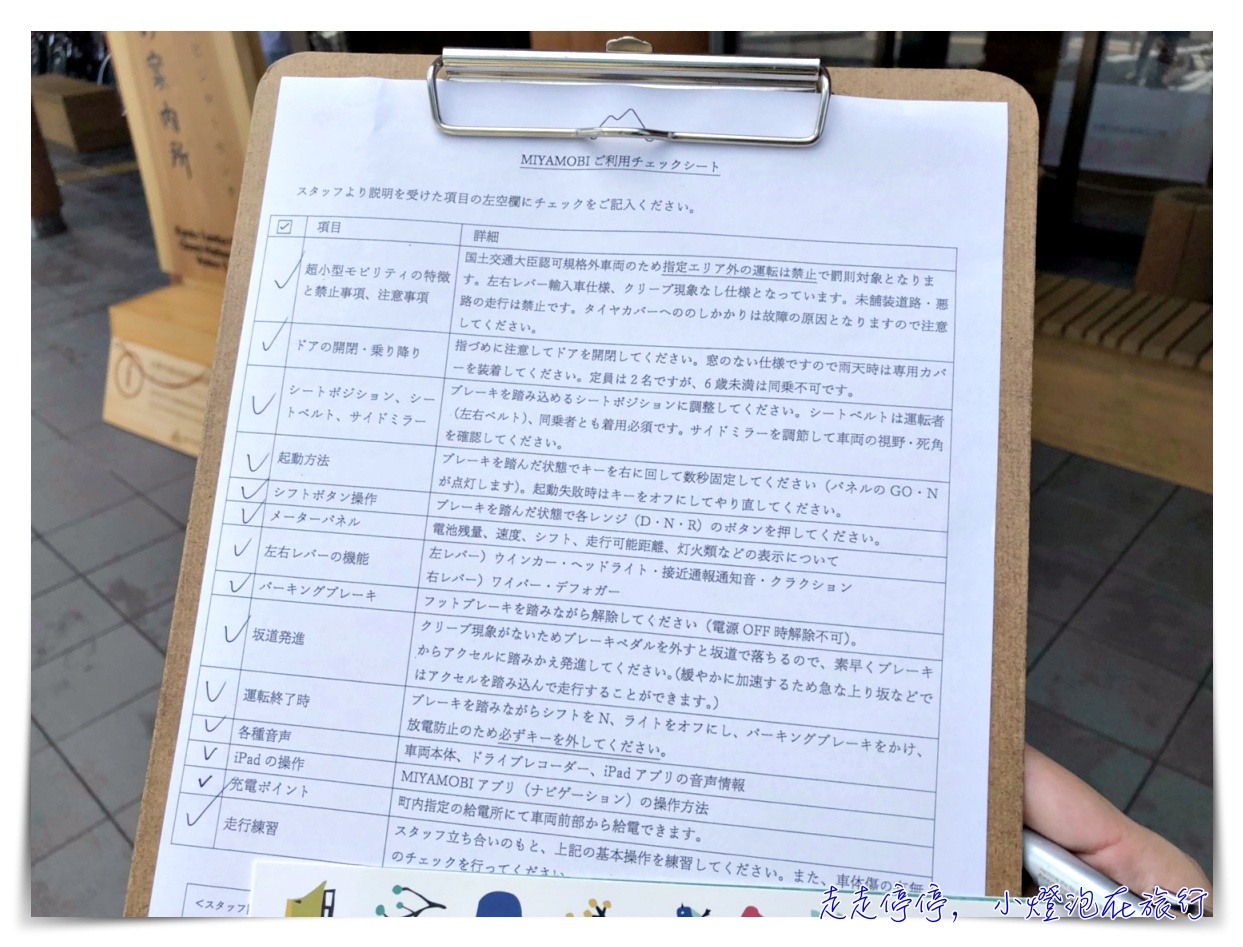 案内所
MIYAMOBI ご利用チェックシート
スタッフより説明を受けた項目の左空欄にチェックをご記入ください。
☑ 項目 詳細
超小型モビリティの特徴
と禁止事項、注意事項
国土交通大臣認可規格外車両のため指定エリア外の運転は禁止で罰則対象となりま
す。左右レバー輸入車仕様、クリープ現象なし仕様となっています。未舗装道路・悪
路の走行は禁止です。タイヤカバーへののしかかりは故障の原因となりますので注意
してください。
ドアの開閉・乗り降り
指づめに注意してドアを開閉してください。窓のない仕様ですので雨天時は専用カバ
ーを装着してください。定員は2名ですが、6歳未満は同乗不可です。
シートポジション、シー
トベルト、サイドミラー
ブレーキを踏み込めるシートポジションに調整してください。シートベルトは運転者
（左右ベルト）、同乗者とも着用必須です。サイドミラーを調節して車両の視野・死角
を確認してください。
起動方法
ブレーキを踏んだ状態でキーを右に回して数秒固定してください（パネルのGO・N
が点灯します）。起動失敗時はキーをオフにしてやり直してください。
シフトボタン操作
ブレーキを踏んだ状態で各レンジ（D・N・R）のボタンを押してください。
メーターパネル
電池残量、速度、シフト、走行可能距離、灯火類などの表示について
左右レバーの機能
左レバー）ウインカー・ヘッドライト・接近通報通知音・クラクション
右レバー）ワイパー・デフォガー
パーキングブレーキ
フットブレーキを踏みながら解除してください（電源OFF時解除不可）。
坂道発進
クリープ現象がないためブレーキペダルを外すと坂道で落ちるので、素早くブレーキ
からアクセルに踏みかえ発進してください。（緩やかに加速するため急な上り坂などで
はアクセルを踏み込んで走行することができます。）
運転終了時
ブレーキを踏みながらシフトをN、ライトをオフにし、パーキングブレーキをかけ、
放電防止のため必ずキーを外してください。
各種音声
車両本体、ドライブレコーダー、iPadアプリの音声情報
iPadの操作
MIYAMOBIアプリ（ナビゲーション）の操作方法
充電ポイント
町内指定の給電所にて車両前部から給電できます。
走行練習
スタッフ立ち合いのもと、上記の基本操作を練習してください。また、車体傷の有無
のチェックを行ってください。
＜スタッフ
走走停停，小燈泡在旅行